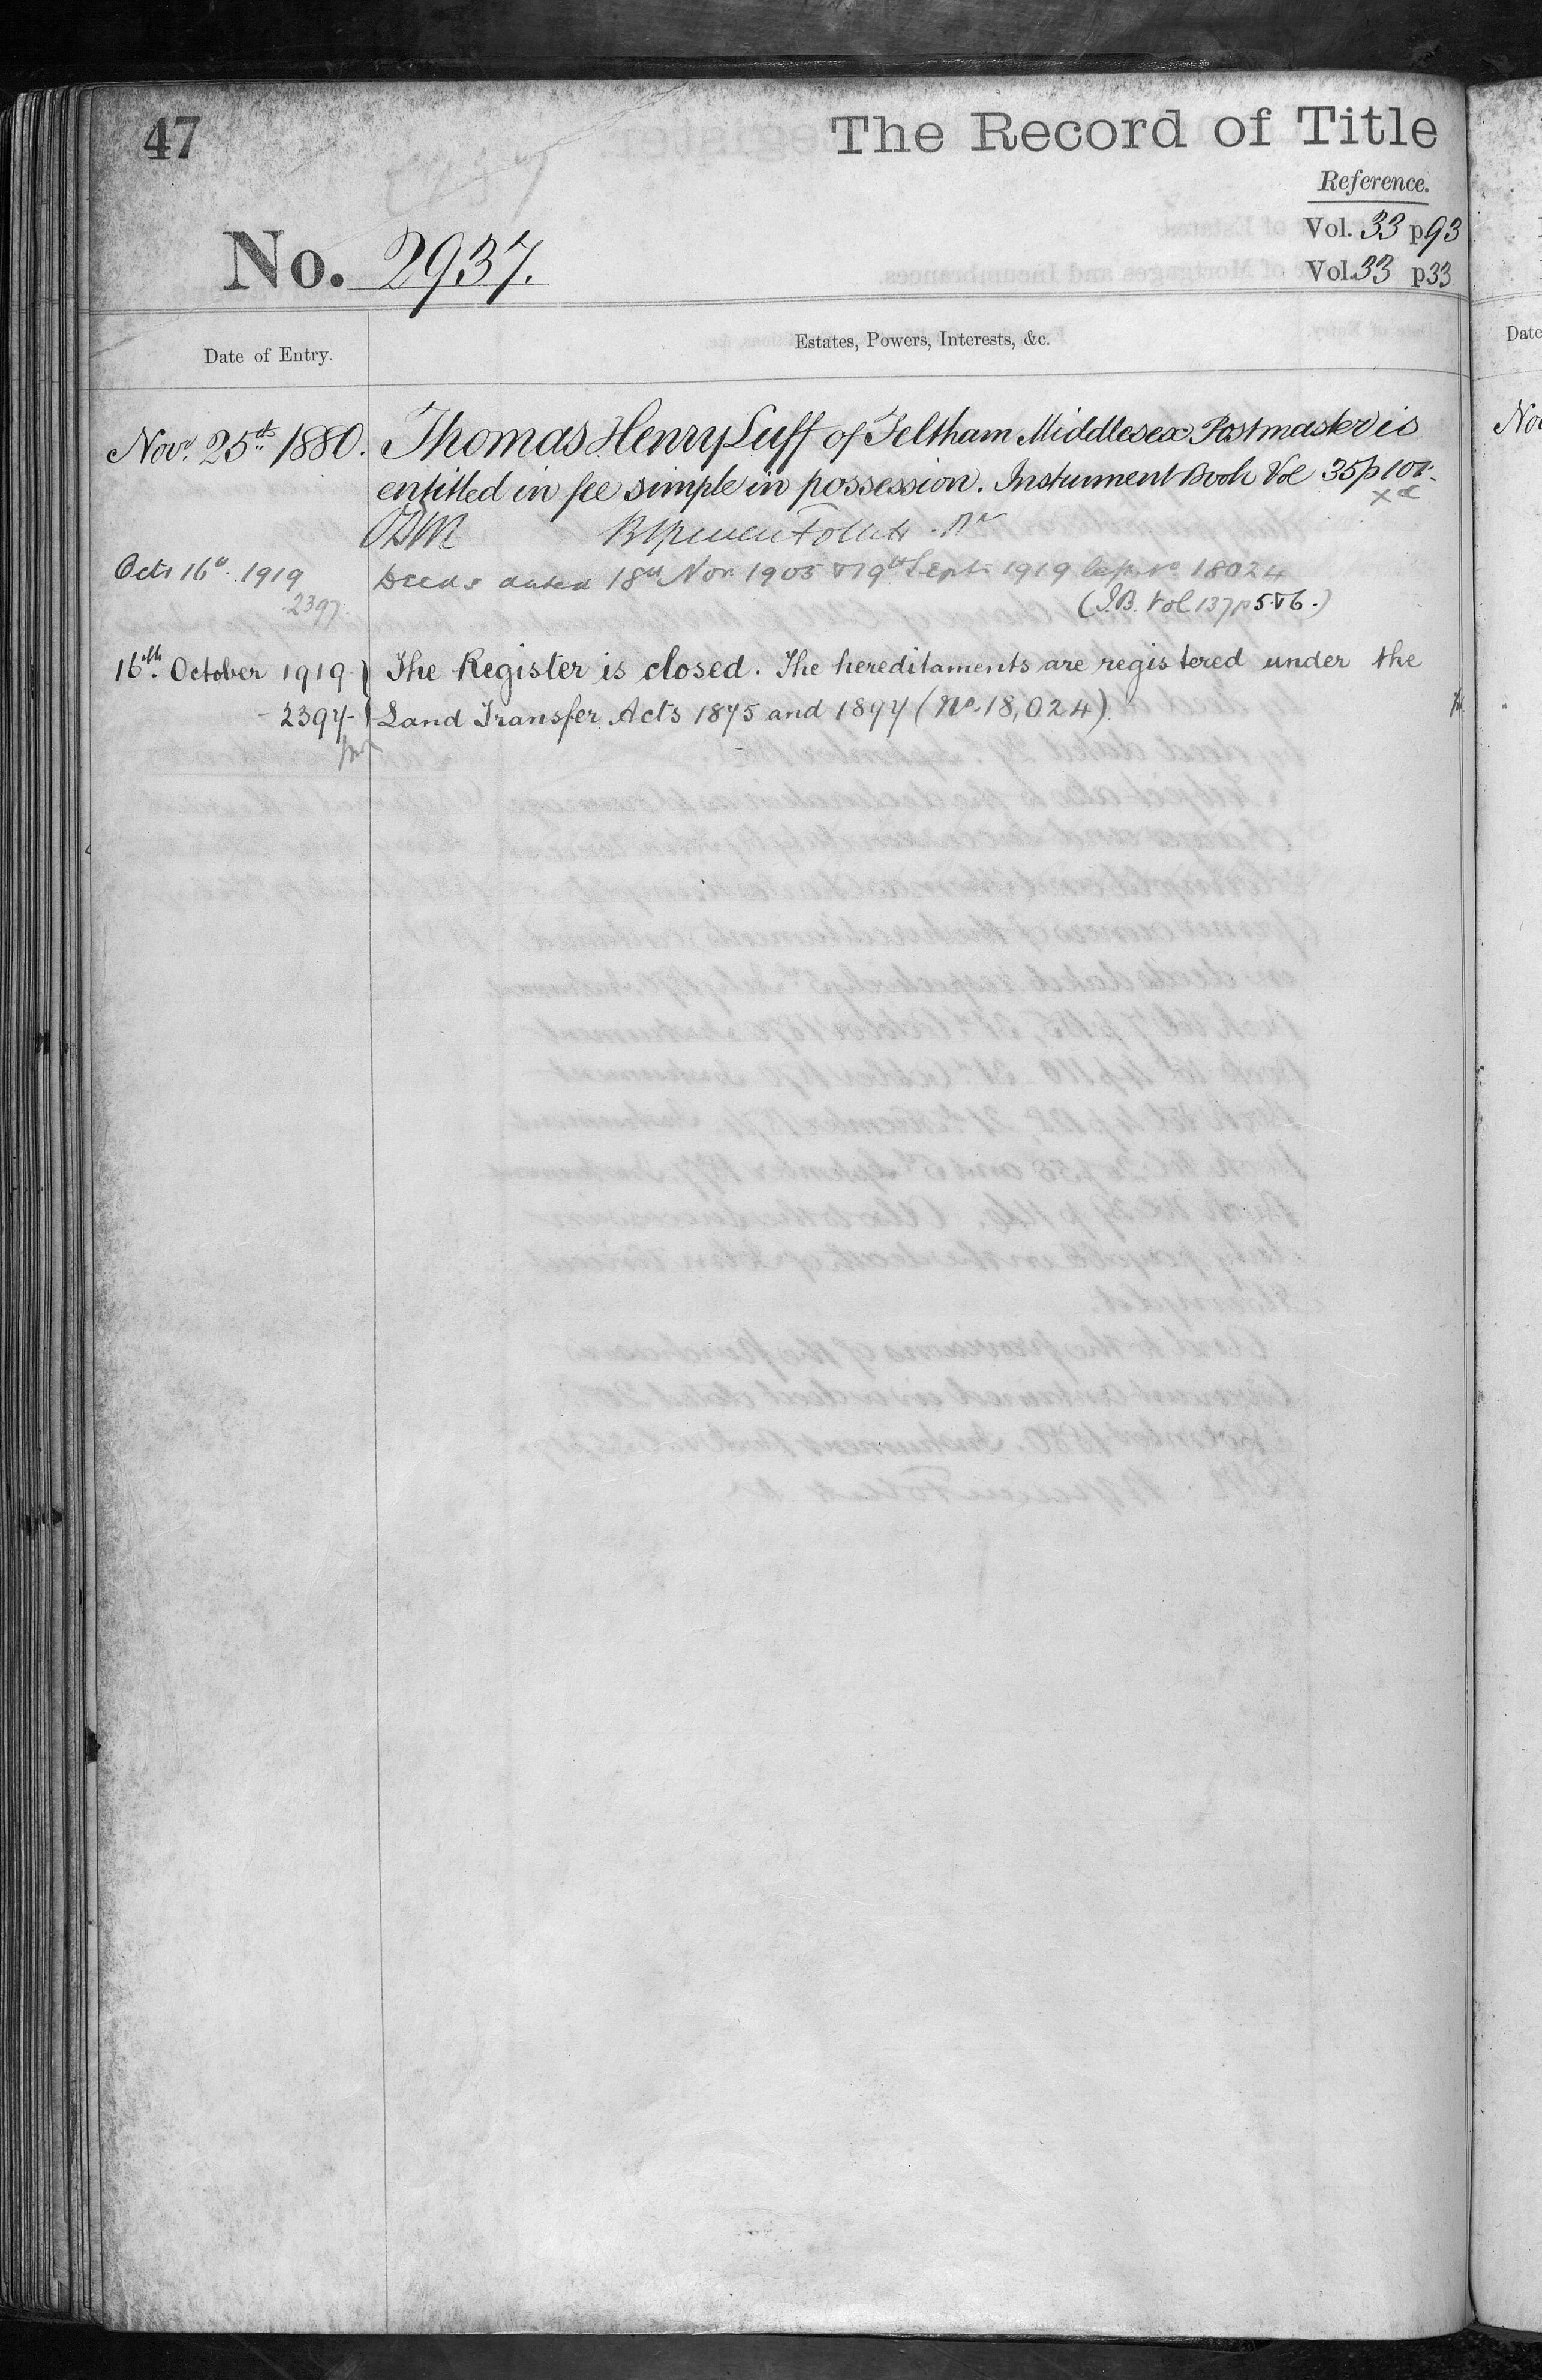 47
The Record of Title
Reference.
Vol. 33 p93
No. 2937.
Vol. 33 p33
Date of Entry.
Estates, Powers, Interests, &c.
Novr. 25th 1880. Thomas Henry Luff of Feltham Middlesex Postmaster is
entitled in fee simple in possession. Instrument Book Vol 35 p 101.
Octr 16th 1919 Deeds dated 18th Nov 1905 & 19th Sept 1919 18024
2397 (I.B. Vol 137 p 5 & 6.)
16th October 1919 The Register is closed. The hereditaments are registered under the
2397 Land Transfer Acts 1875 and 1897 (No. 18,024)
Date
Nov